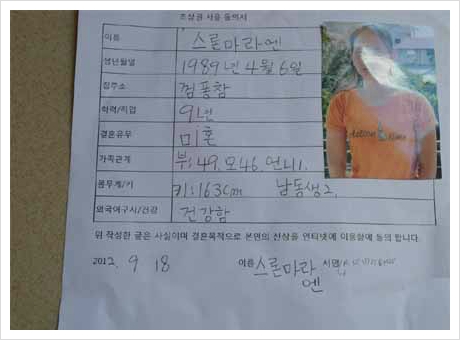 초상권 사용 동의서
이름 스론마라엔
생년월일 1989년 4월 6일
집주소 껌퐁참
학력/직업
결혼유무 미혼
가족관계 부:49.모46.언니1.
몸무게/키 키:163cm 남동생2,
외국어구사/건강 건강함
위 작성한 글은 사실이며 결혼목적으로 본면의 신상을 인터넷에 이용함에 동의 합니다.
2012. 9 18 이름 스론마라 서명
엔
Action